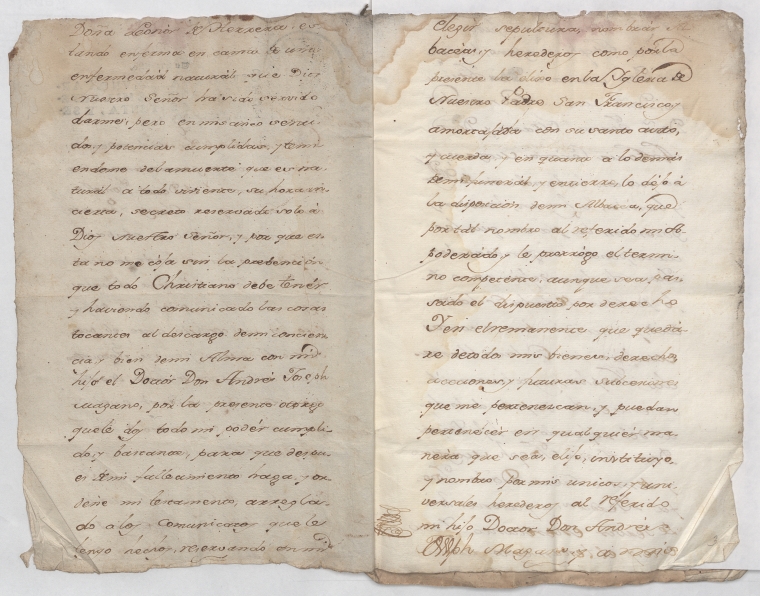 Doña Leonor de Herrera, es
tando enferma en cama de una
enfermedad natural que Dios
Nuestro Señor ha sido servido
darme, pero en mis sano senti
dos, y potencias cumplidas, y temi
endome de la muerte que es na
tural a todo viviente, su hora in
cierta, secreto reservado solo â
Dios Nuestro Señor, y por que es
ta no me coja sin la prebencion
que todo Christiano debe tener
y haviendo comunicado las cosas
tocantes al descargo de mi concien
cia, y bien de mi Alma con mi
hijo el Doctor Don Andrés Joseph
Magano, por la presente otorgo
que le doy todo mi podér cumpli
do, y bastante, para que despu
es de mi fallecimiento haga, y or
dene mi testamento, arreglan
do a los Comunicatos que le
tengo hechos, reservando en mi
Elegir sepultura, nombrar Al
baceas, y herederos como por la
presente la elijo en la Yglesia de
Nuestro Padre San Francisco, y
amortajada con su santo avito,
y cuerda, y en quanto a lo demás
de mi funeral, y entierro, lo dejo â
la disposicion de mi Albacea, que
por tal nombro al referido mi A-
poderado, y le prorrógo el termi
no competente, aunque sea pa
sado el dispuesto por derecho
Y en el remanente que queda
re de todos mis bienes, derechos
acciones, y futuras subcesiones
que me pertenescan, y puedan
pertenecer en qualquier ma
nera que sea, elijo, instituyo,
y nombro por mis unicos, y uni
versales herederos al referido
mi hijo Doctor Don Andrés
Joseph Magano, y a